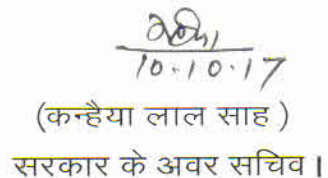 10.10.17
(कन्हैया लाल साह )
सरकार के अवर सचिव।